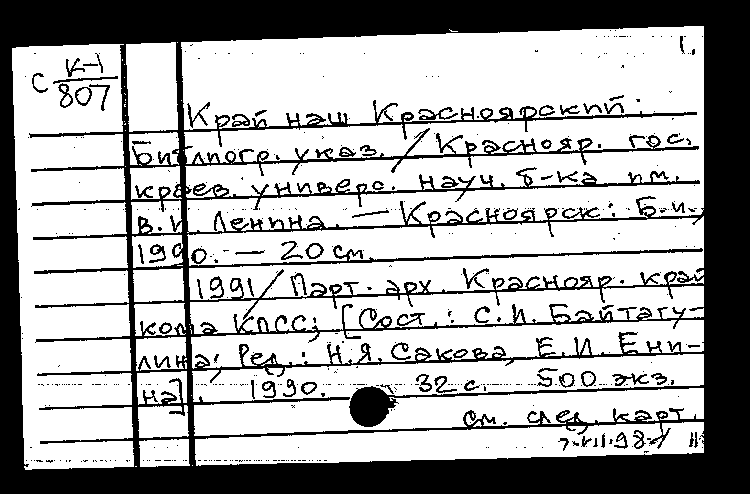 1.
С К-1
807
Край наш Красноярский:
Библиогр. указ. / Краснояр. гос.
краев. универс. науч. б-ка им.
В.И. Ленина. — Красноярск: Б.и.,
1990. — 20 см.
1991 / Парт. арх. Краснояр. край
кома КПСС; [Сост.: С.И. Байтагу-
лина; Ред.: Н.Я. Сакова, Е.И. Ени-
на]. 1990. 32 с. 500 экз.
см. след. карт.